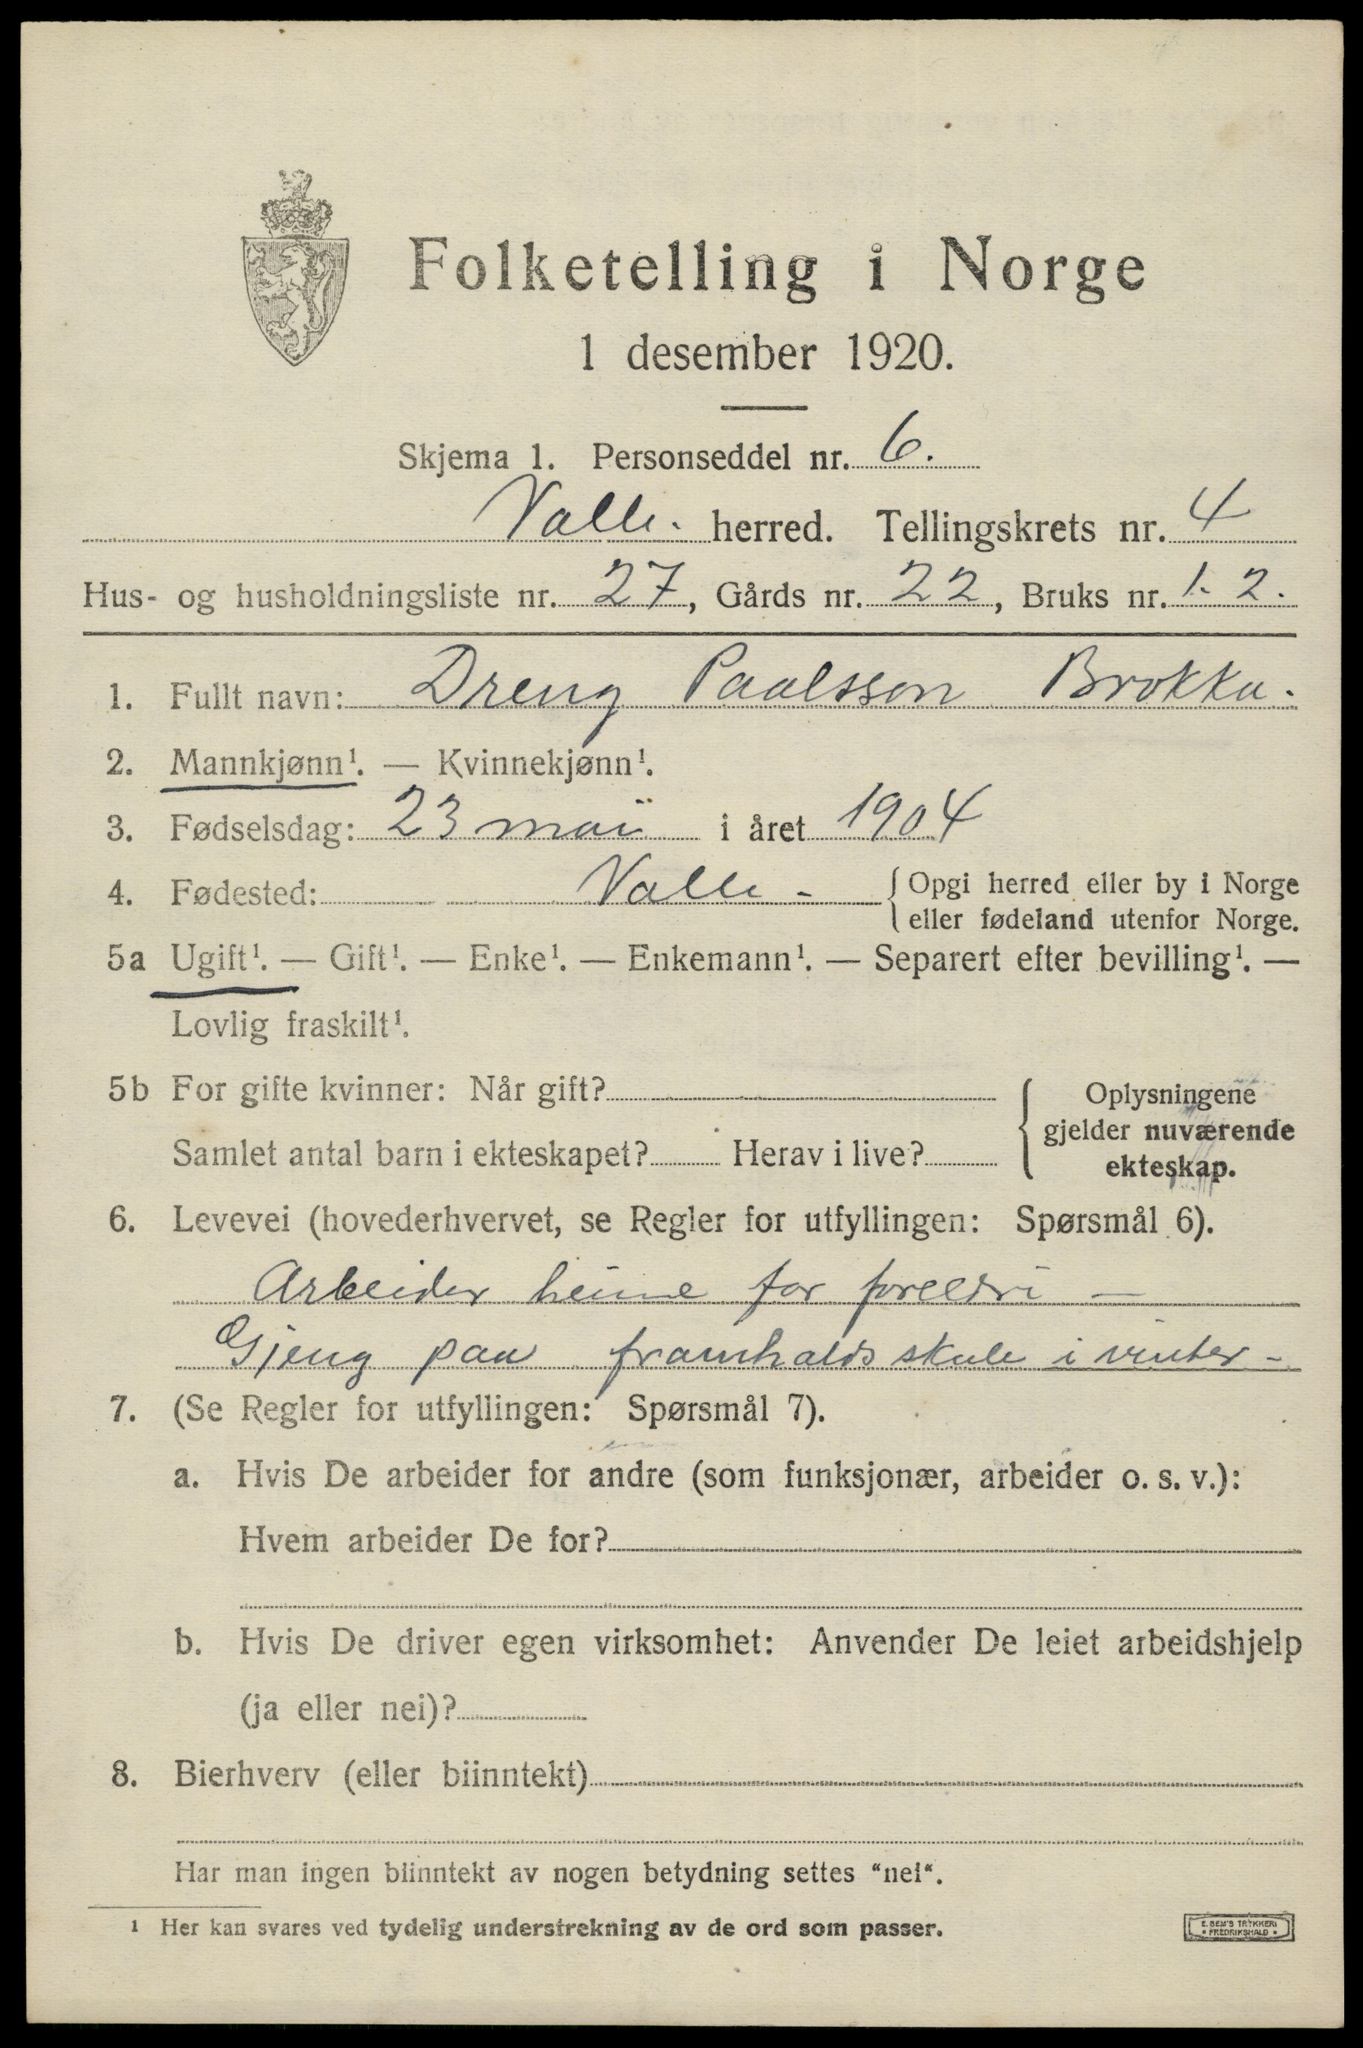 Folketelling i Norge
1 desember 1920.
Skjema 1. Personseddel nr. 6.
Valle. herred. Tellingskrets nr. 4
Hus- og husholdningsliste nr. 27, Gårds nr. 22, Bruks nr. 1. 2.
1. Fullt navn: Dreng Paalsson Brokka.
2. Mannkjønn¹. — Kvinnekjønn¹.
3. Fødselsdag: 23 mai i året 1904
4. Fødested: Valle - { Opgi herred eller by i Norge
eller fødeland utenfor Norge.
5a Ugift¹. — Gift¹. — Enke¹. — Enkemann¹. — Separert efter bevilling¹. —
Lovlig fraskilt¹.
5b For gifte kvinner: Når gift?
Samlet antal barn i ekteskapet? Herav i live?
Oplysningene
gjelder nuværende
ekteskap.
6. Levevei (hovederhvervet, se Regler for utfyllingen: Spørsmål 6).
Arbeider heime for foreldri —
Gjeng paa framhaldsskule i vinter -
7. (Se Regler for utfyllingen: Spørsmål 7).
a. Hvis De arbeider for andre (som funksjonær, arbeider o. s. v.):
Hvem arbeider De for?
b. Hvis De driver egen virksomhet: Anvender De leiet arbeidshjelp
(ja eller nei)?
8. Bierhverv (eller biinntekt)
Har man ingen biinntekt av nogen betydning settes "nei".
¹ Her kan svares ved tydelig understrekning av de ord som passer.
E. SEM'S TRYKKERI
• FREDRIKSHALD •